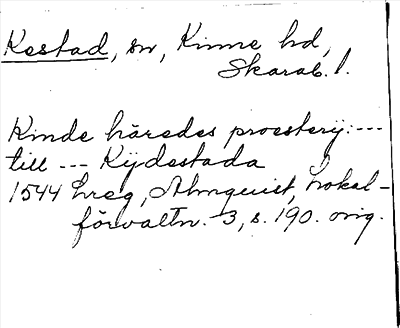 Kestad, sn, Kinne hd,
Skarab. l.
Kinde häredes proesterij: ---
till --- Kijdestada
1544 hreg, Almquist, Lokal-
förvaltn. 3, s. 190. orig.